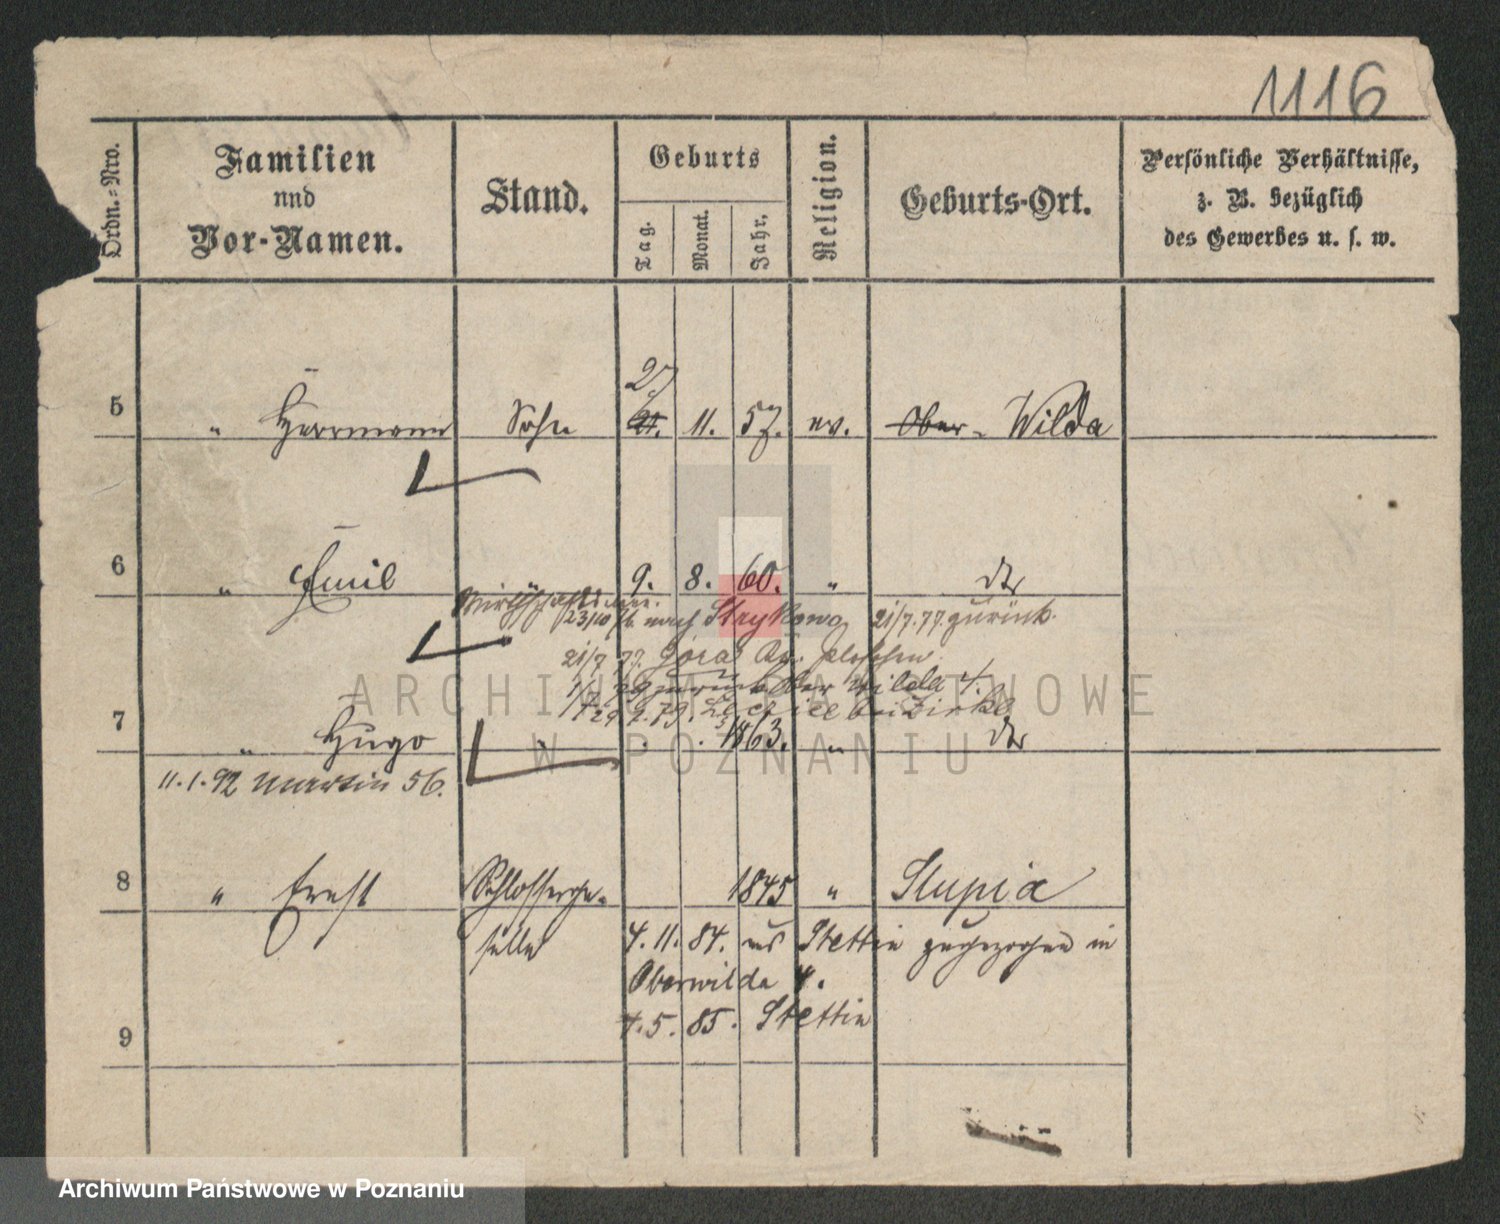 1116
Ordn.=Nro.
Familien
und
Vor-Namen.
Stand.
Geburts
Tag.
Monat.
Jahr.
Religion.
Geburts-Ort.
Persönliche Verhältnisse,
z. B. bezüglich
des Gewerbes u. s. w.
27
5 " Herrmann Sohn 21. 11. 57. ev. Ober - Wilda
6 " Emil 9. 8. 60. " dto
23/10 76. nach Strykowo 21/7.77 zurück.
21/7 77. Góra Kr. Pleschen
zurück Ober Wilda 4.
7 " Hugo 1863. " dto
11.1.92 Martin 56.
8 " Ernst Schlosserge- 1845 " Slupia
selle 4. 11. 84. aus Stettin zugezogen in
Oberwilda 4.
4. 5. 85. Stettin
9
ARCHIWUM PAŃSTWOWE
W POZNANIU
Archiwum Państwowe w Poznaniu